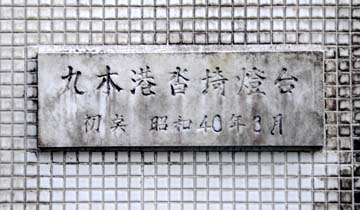 九木港沓埼燈台
初奌 昭和40年3月